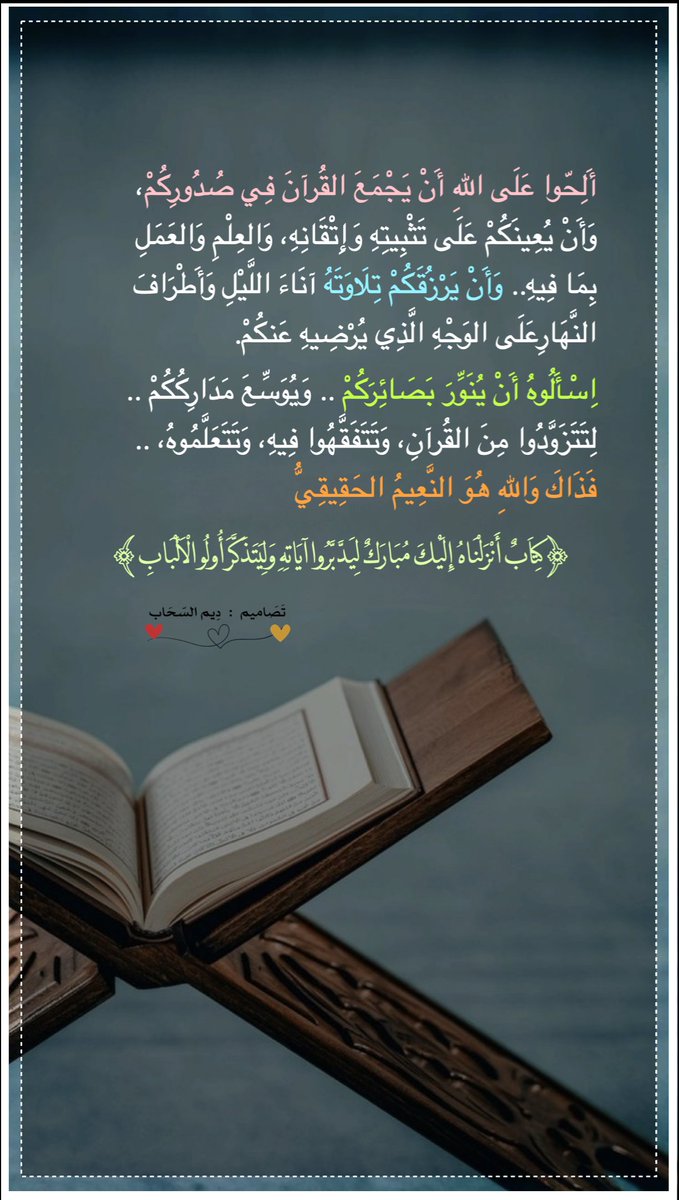 أَلِحّوا عَلَى اللهِ أَنْ يَجْمَعَ القُرآنَ فِي صُدُورِكُمْ،
وَأَنْ يُعِينَكُمْ عَلَى تَثْبِيتِهِ وَإِتْقَانِهِ، وَالعِلْمِ وَالعَمَلِ
بِمَا فِيهِ.. وَأَنْ يَرْزُقَكُمْ تِلَاوَتَهُ آنَاءَ اللَّيْلِ وَأَطْرَافَ
النَّهَارِعَلَى الوَجْهِ الَّذِي يُرْضِيهِ عَنكُمْ.
اِسْأَلُوهُ أَنْ يُنَوِّرَ بَصَائِرَكُمْ .. وَيُوَسِّعَ مَدَارِكُكُمْ ..
لِتَتَزَوَّدُوا مِنَ القُرآنِ، وَتَتَفَقَّهُوا فِيهِ، وَتَتَعَلَّمُوهُ، ..
فَذَاكَ وَاللهِ هُوَ النَّعِيمُ الحَقِيقِيُّ
﴿كِتَابٌ أَنْزَلْنَاهُ إِلَيْكَ مُبَارَكٌ لِيَدَّبَّرُوا آيَاتِهِ وَلِيَتَذَكَّرَ أُولُو الْأَلْبَابِ﴾
تَصَاميم : دِيم السّحَاب